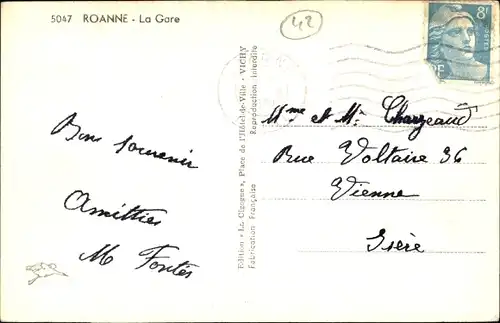 5047 ROANNE - La Gare
42
8F
RF
Bons souvenirs
Amitties
M Fontès
Edition « La Cigogne », Place de l'Hôtel-de-Ville - VICHY
Fabrication Française Reproduction Interdite
Mme et Mr Changeaud
Rue Voltaire 36
Vienne
Isère